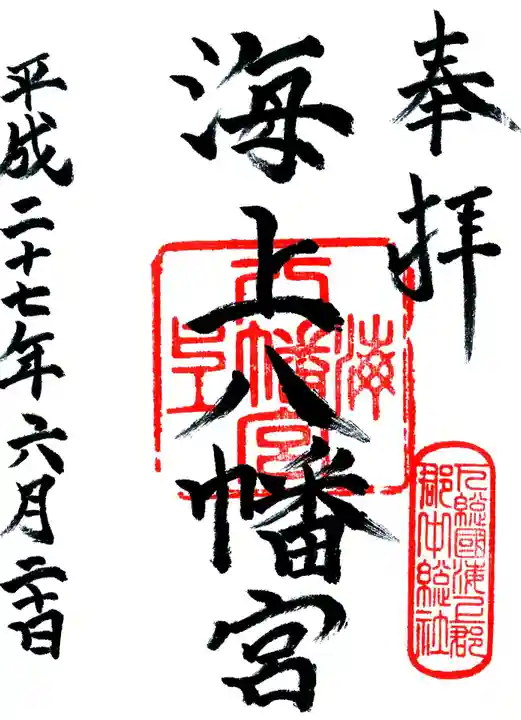 奉拝
下総國海上郡
郡中総社
海上八幡宮
平成二十七年六月二十日